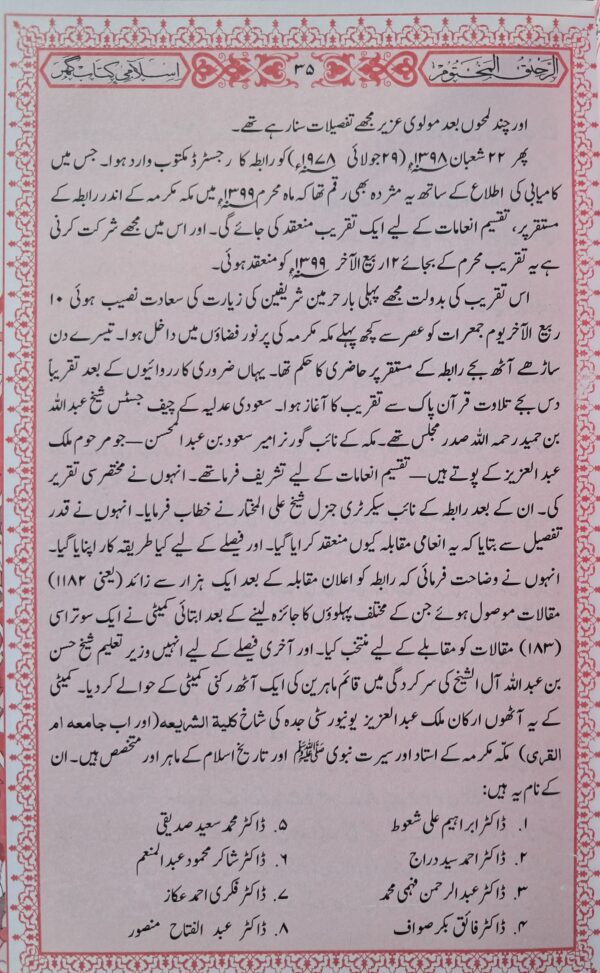 الرحیق المختوم
۳۵
اسلامی کتاب گھر
اور چند لمحوں بعد مولوی عزیر مجھے تفصیلات سنا رہے تھے۔
پھر ۲۲ شعبان ۱۳۹۸ھ (۲۹ جولائی ۱۹۷۸ء) کو رابطہ کا رجسٹرڈ مکتوب وارد ہوا۔ جس میں
کامیابی کی اطلاع کے ساتھ یہ مژدہ بھی رقم تھا کہ ماہ محرم ۱۳۹۹ھ میں مکہ مکرمہ کے اندر رابطہ کے
مستقر پر، تقسیم انعامات کے لیے ایک تقریب منعقد کی جائے گی۔ اور اس میں مجھے شرکت کرنی
ہے یہ تقریب محرم کے بجائے ۱۲ ربیع الآخر ۱۳۹۹ھ کو منعقد ہوئی۔
اس تقریب کی بدولت مجھے پہلی بار حرمین شریفین کی زیارت کی سعادت نصیب ہوئی ۱۰
ربیع الآخر یوم جمعرات کو عصر سے کچھ پہلے مکہ مکرمہ کی پرنور فضاؤں میں داخل ہوا۔ تیسرے دن
ساڑھے آٹھ بجے رابطہ کے مستقر پر حاضری کا حکم تھا۔ یہاں ضروری کارروائیوں کے بعد تقریباً
دس بجے تلاوت قرآن پاک سے تقریب کا آغاز ہوا۔ سعودی عدلیہ کے چیف جسٹس شیخ عبداللہ
بن حمید رحمہ اللہ صدر مجلس تھے۔ مکہ کے نائب گورنر امیر سعود بن عبدالمحسن — جو مرحوم ملک
عبدالعزیز کے پوتے ہیں — تقسیم انعامات کے لیے تشریف فرما تھے۔ انہوں نے مختصر سی تقریر
کی۔ ان کے بعد رابطہ کے نائب سیکرٹری جنرل شیخ علی المختار نے خطاب فرمایا۔ انہوں نے قدر
تفصیل سے بتایا کہ یہ انعامی مقابلہ کیوں منعقد کرایا گیا۔ اور فیصلے کے لیے کیا طریقہ کار اپنایا گیا۔
انہوں نے وضاحت فرمائی کہ رابطہ کو اعلان مقابلہ کے بعد ایک ہزار سے زائد (یعنی ۱۱۸۲)
مقالات موصول ہوئے جن کے مختلف پہلوؤں کا جائزہ لینے کے بعد ابتائی کمیٹی نے ایک سو تراسی
(۱۸۳) مقالات کو مقابلے کے لیے منتخب کیا۔ اور آخری فیصلے کے لیے انہیں وزیر تعلیم شیخ حسن
بن عبداللہ آل الشیخ کی سرکردگی میں قائم ماہرین کی ایک آٹھ رکنی کمیٹی کے حوالے کر دیا۔ کمیٹی
کے یہ آٹھوں ارکان ملک عبدالعزیز یونیورسٹی جدہ کی شاخ کلیة الشریعه (اور اب جامعه ام
القری) مکّہ مکرمہ کے استاد اور سیرت نبوی ﷺ اور تاریخ اسلام کے ماہر اور متخصص ہیں۔ ان
کے نام یہ ہیں:
۱. ڈاکٹر ابراہیم علی شعوط
۵. ڈاکٹر محمد سعید صدیقی
۲. ڈاکٹر احمد سید دراج
۶. ڈاکٹر شاکر محمود عبدالمنعم
۳. ڈاکٹر عبدالرحمن فہمی محمد
۷. ڈاکٹر فکری احمد عکاز
۴. ڈاکٹر فائق بکر صواف
۸. ڈاکٹر عبد الفتاح منصور